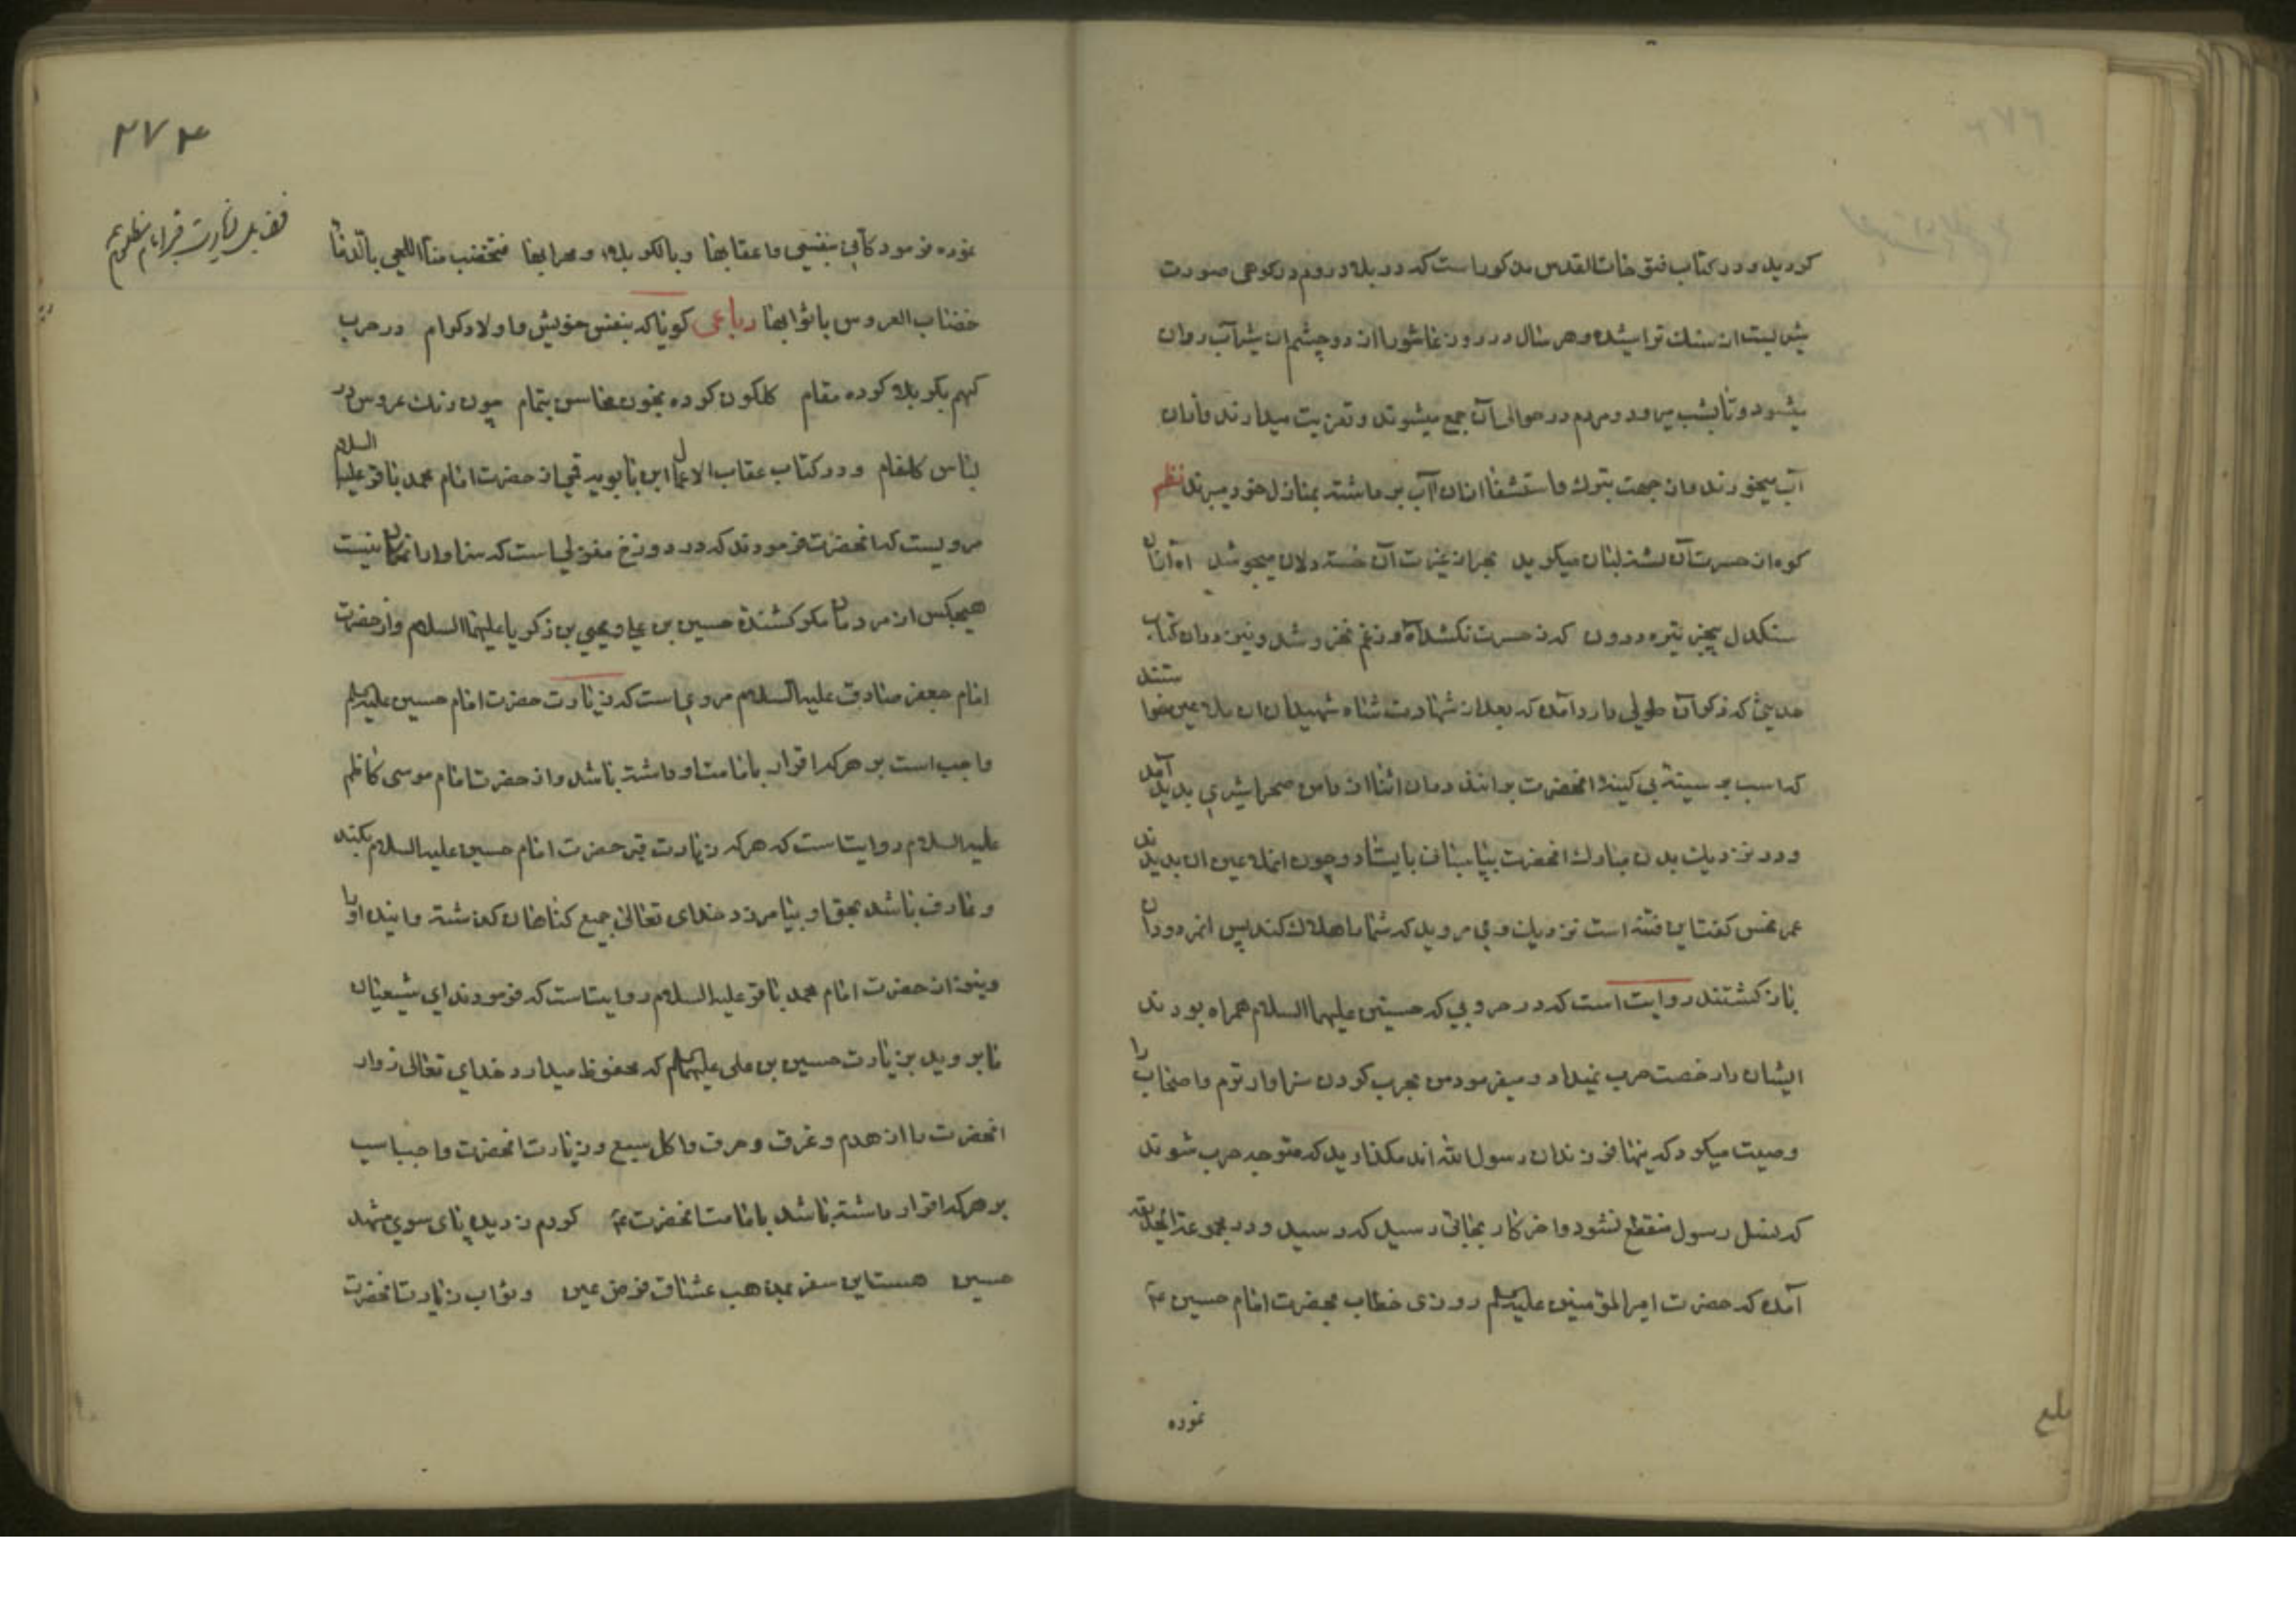 کردید و در کتاب فتوحات القدس مذکور است که در بلاد روم در کوهی صورت
شیریست از سنک تراشیده و هر سال در روز عاشورا از دو چشم ان شیر آب روان
میشود و تا بشب میرود و مردم در حوالی آن جمع میشوند و تعزیت میدارند و از ان
آب میخورند و از جهت تبرک و استشفا از ان آب برداشته بمنازل خود میبرند نظم
کوه از حسرت آن تشنه لبان میکرید بحر از غیرت آن خسته دلان میجوشد اه از ان
سنکدل بیخبر تیره درون که ز حسرت نکشد آه و ز غم نخروشد و نیز در ان کتاب
حدیثی که ذکر آن طولی دارد آمده که بعد از شهادت شاه شهیدان ان ملاعین خواستند
که اسب بر سینهٔ بی کینهٔ انحضرت برانند در ان اثنا از دامن صحرا شیری بدید آمد
و در نزدیک بدن مبارک انحضرت بپاسبانی بایستاد و چون انملاعین ان بدیدند
عمر نحس کفت این فتنه است نزدیک وی مروید که شما را هلاک کند پس انمردودان
باز کشتند روایت است که در حروبی که حسنین علیهما السلام همراه بودند
ایشان را رخصت حرب نمیداد و میفرمود من بحرب کردن سزاوارترم و اصحاب را
وصیت میکرد که اینها فرزندان رسول الله اند مکذارید که متوجه حرب شوند
که نسل رسول منقطع نشود و اخر کار بجائی رسید که رسید و در مجموعة
آمده که حضرت امیر المؤمنین علیه السلم روزی خطاب بحضرت امام حسین ع
نموده
بلغ
۲۷۴
فضایل زیارت قبر امام مظلوم ع
نموده فرمود کانی بنفسی و اعقابها و بالکربلاء و محرابها فتخضب منا اللحی بالدما
خضاب العروس باثوابها رباعی کویا که بنفس خویش و اولاد کرام در حرب
کهم بکربلا کرده مقام کلکون کرده بخون محاسن بتمام چون رنک عروس در
لباس کلفام و در کتاب عقاب الاعمال ابن بابویه قمی از حضرت امام محمد باقر علیه السلام
مرویست که انحضرت فرمودند که در دوزخ منزلیست که سزاوار ان نیست
هیچکس از مردمان مکر کشندهٔ حسین بن علی و یحیی بن زکریا علیهما السلام و از حضرت
امام جعفر صادق علیه السلام مرویست که زیارت حضرت امام حسین علیه السلم
واجب است بر هر که اقرار بامامت او داشته باشد و از حضرت امام موسی کاظم
علیه السلام روایتست که هر که زیارت قبر حضرت امام حسین علیه السلام بکند
و عارف باشد بحق او بیامرزد خدای تعالی جمیع کناهان کذشته و اینده او را
و نیز از حضرت امام محمد باقر علیه السلام روایتست که فرمودند ای شیعیان
ما بروید بزیارت حسین بن علی علیهما السلم که محفوظ میدارد خدای تعالی زوار
انحضرت را از هدم و غرق و حرق و اکل سبع و زیارت انحضرت واجبست
بر هر که اقرار داشته باشد بامامت انحضرت ع کردم ز دیده پای سوی مشهد
حسین هست این سفر بمذهب عشاق فرض عین و ثواب زیارت انحضرت